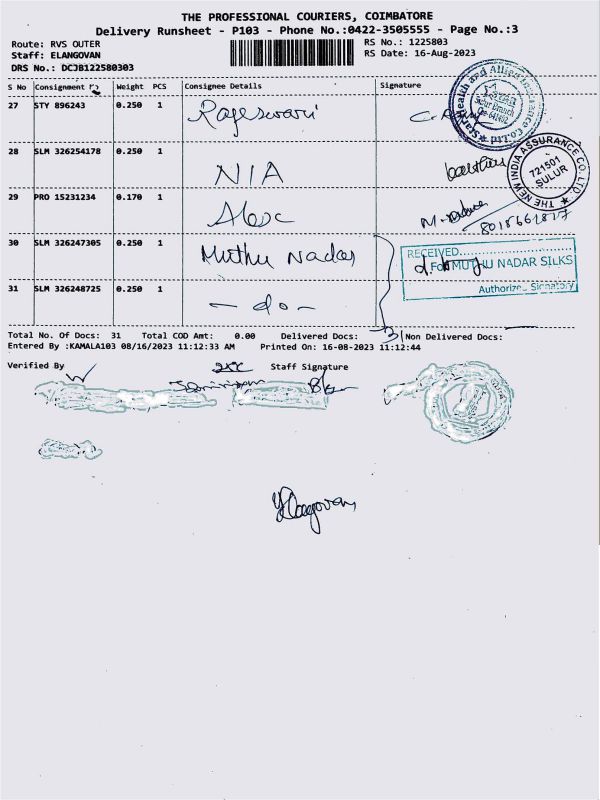 THE PROFESSIONAL COURIERS, COIMBATORE
Delivery Runsheet - P103 - Phone No.:0422-3505555 - Page No.:3
Route: RVS OUTER
RS No.: 1225803
Staff: ELANGOVAN
RS Date: 16-Aug-2023
DRS No.: DCJB122580303
S No Consignment Weight PCS Consignee Details Signature
27 STY 896243 0.250 1 Rajeswari
Star Health and Allied Insurance Co Ltd
Sulur Branch
28 SLM 326254178 0.250 1 NIA
THE NEW INDIA ASSURANCE CO. LTD.
721501
SULUR
29 PRO 15231234 0.170 1 Alex
30 SLM 326247305 0.250 1 Muthu Nadar
RECEIVED
For MUTHU NADAR SILKS
Authorized Signatory
31 SLM 326248725 0.250 1 - do -
Total No. Of Docs: 31 Total COD Amt: 0.00 Delivered Docs: 31 Non Delivered Docs:
Entered By :KAMALA103 08/16/2023 11:12:33 AM Printed On: 16-08-2023 11:12:44
Verified By Staff Signature
Elangovan